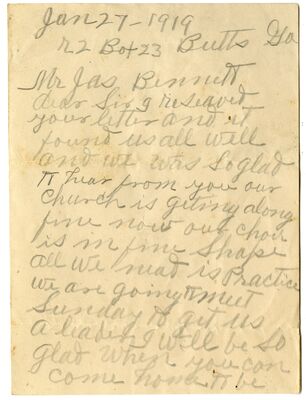 Jan 27-1919
R2 Box 23 Butts Ga
Mr Jas Bennett
dear Sir I reseaved
your letter and it
found us all well
and we was So glad
to hear from you our
Church is geting along
fine now our choir
is in fine Shape
all we nead is Practice
we are going to meet
Sunday to get us
a leader I will be So
glad when you can
come home to be